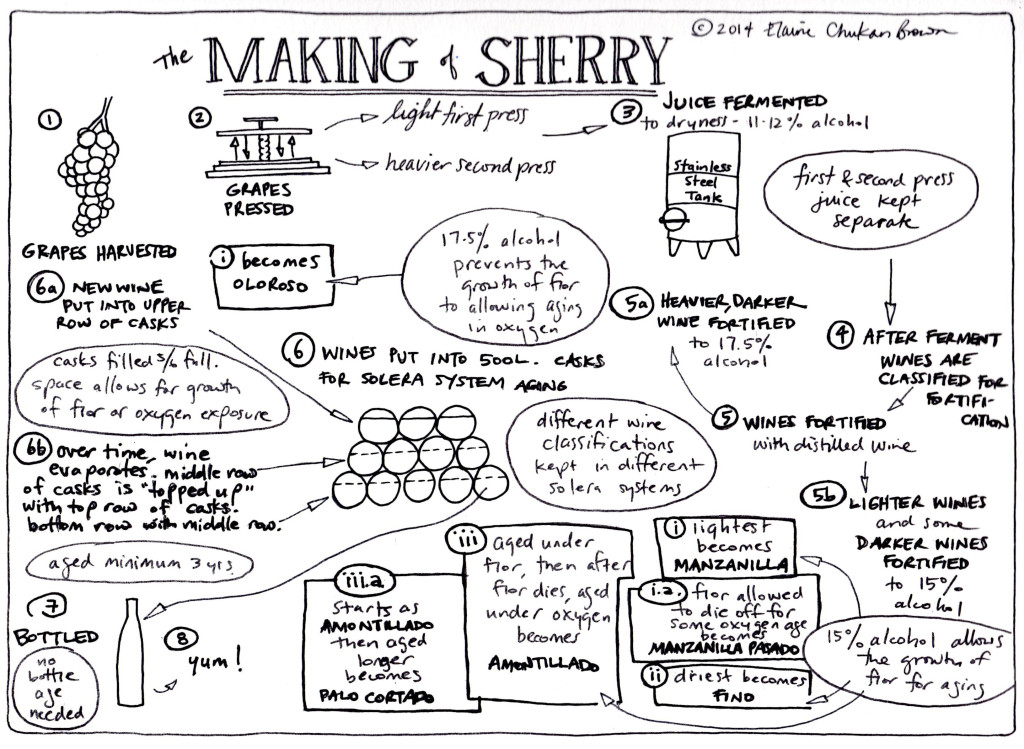 © 2014 Elaine Chukan Brown
The MAKING of SHERRY
1
GRAPES HARVESTED
2
GRAPES
PRESSED
light first press
heavier second press
3 JUICE FERMENTED
to dryness - 11-12% alcohol
Stainless
Steel
Tank
first & second press
juice kept
separate
4 AFTER FERMENT
WINES ARE
CLASSIFIED FOR
FORTIFI-
CATION
5 WINES FORTIFIED
with distilled wine
5a HEAVIER, DARKER
WINE FORTIFIED
to 17.5%
alcohol
17.5% alcohol
prevents the
growth of flor
to allowing aging
in oxygen
i becomes
OLOROSO
5b LIGHTER WINES
and some
DARKER WINES
FORTIFIED
to 15%
alcohol
15% alcohol allows
the growth of
flor for aging
i lightest
becomes
MANZANILLA
i.a. flor allowed
to die off for
some oxygen age
becomes
MANZANILLA PASADO
ii driest becomes
FINO
iii aged under
flor, then after
flor dies, aged
under oxygen
becomes
AMONTILLADO
iii.a
Starts as
AMONTILLADO
then aged
longer
becomes
PALO CORTADO
6 WINES PUT INTO 500L. CASKS
FOR SOLERA SYSTEM AGING
different wine
classifications
kept in different
solera systems
6a NEW WINE
PUT INTO UPPER
ROW OF CASKS
casks filled 5/6 full.
space allows for growth
of flor or oxygen exposure
6b over time, wine
evaporates. middle row
of casks is "topped up"
with top row of casks.
bottom row with middle row.
aged minimum 3 yrs.
7
BOTTLED
no
bottle
age
needed
8
yum!